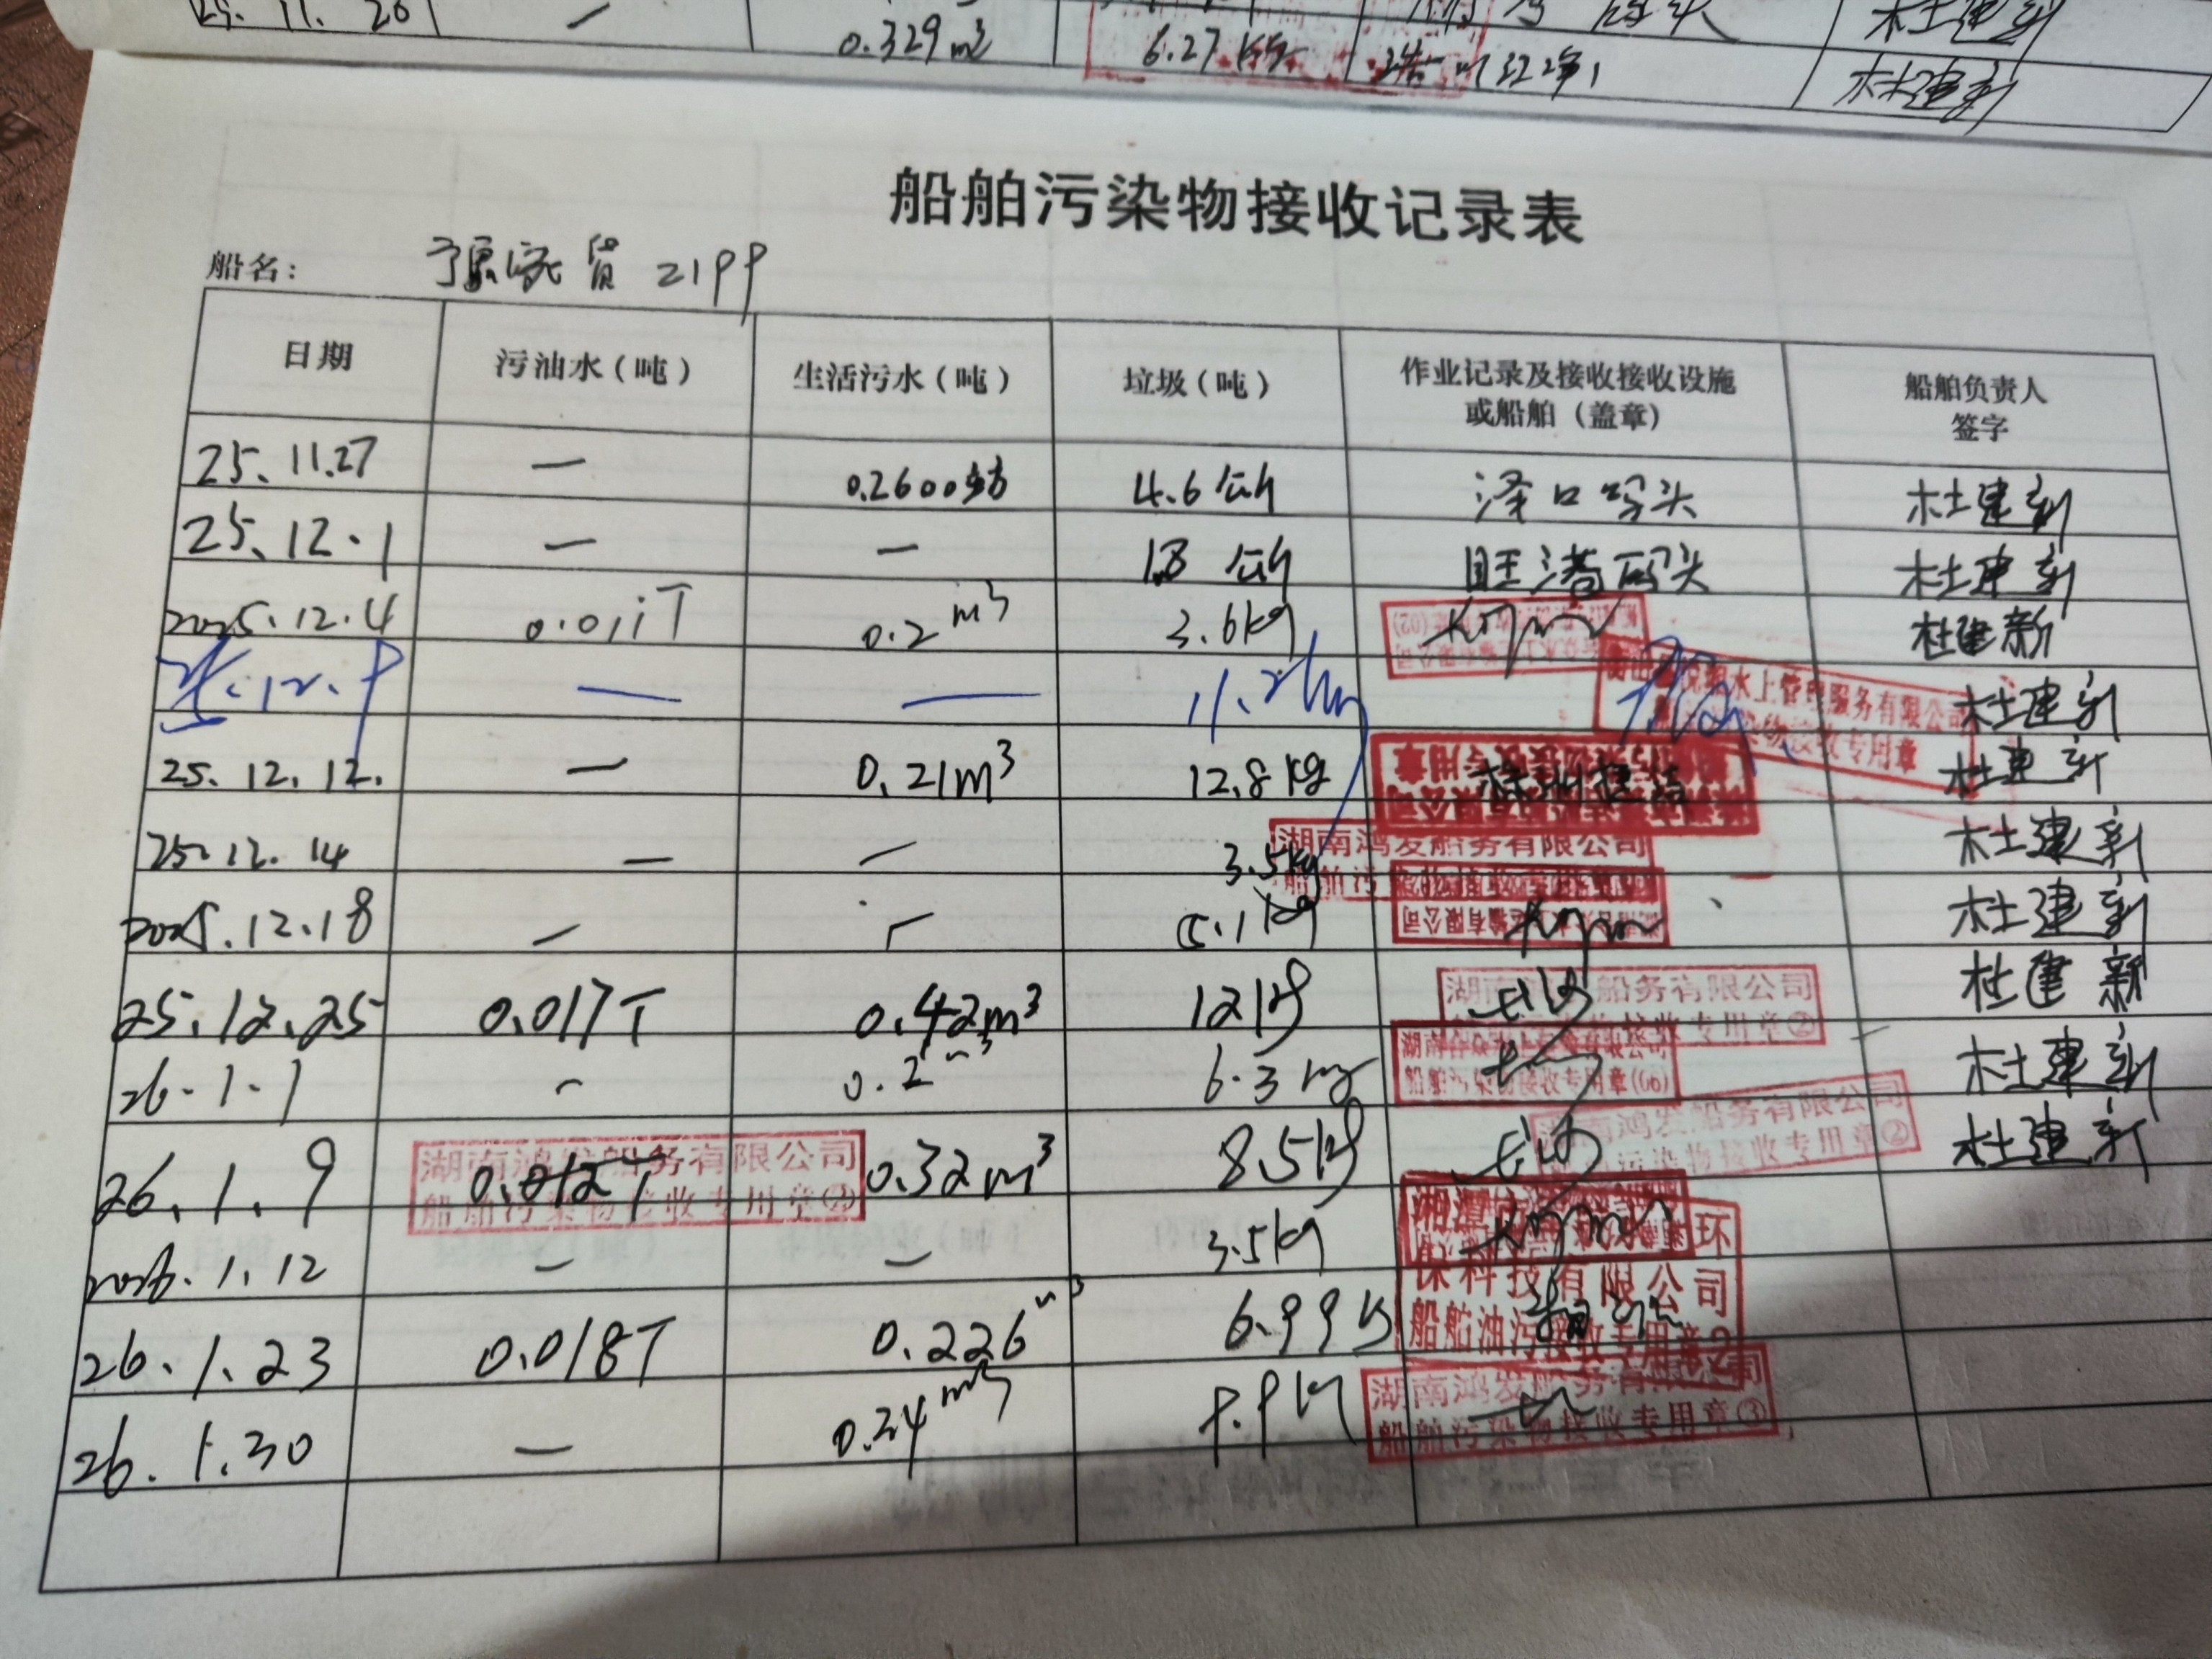 25. 11. 20 —
0.329m³ 6.27kg 杜建新
船舶污染物接收记录表
船名: 货 2199
日期 污油水(吨) 生活污水(吨) 垃圾(吨) 作业记录及接收接收设施或船舶(盖章) 船舶负责人签字
25.11.27 — 0.2600 4.6公斤 泽口码头 杜建新
25.12.1 — — 1.8公斤 旺港码头 杜建新
2025.12.4 0.011T 0.2m³ 3.6kg 杜建新
25.12.9 — — 11.2kg 水上管理服务有限公司 接收专用章 杜建新
25.12.12. — 0.21m³ 12.8kg 杜建新
25.12.14 — — 3.5kg 湖南鸿发船务有限公司 杜建新
2025.12.18 — — 5.1kg 杜建新
25.12.25 0.017T 0.42m³ 12kg 湖南 船务有限公司 接收专用章② 杜建新
26.1.1 — 0.2m³ 6.3kg 船舶污染物接收专用章(06) 杜建新
26.1.9 0.012T 0.32m³ 8.5kg 湖南鸿发船务有限公司 污染物接收专用章② 杜建新
湖南鸿发船务有限公司
船舶污染物接收专用章②
2026.1.12 — — 3.5kg 湘潭
26.1.23 0.018T 0.226m³ 6.99kg 环保科技有限公司 船舶油污接收专用章2
26.1.30 — 0.24m³ 9.9kg 湖南鸿发船务有限公司 船舶污染物接收专用章③